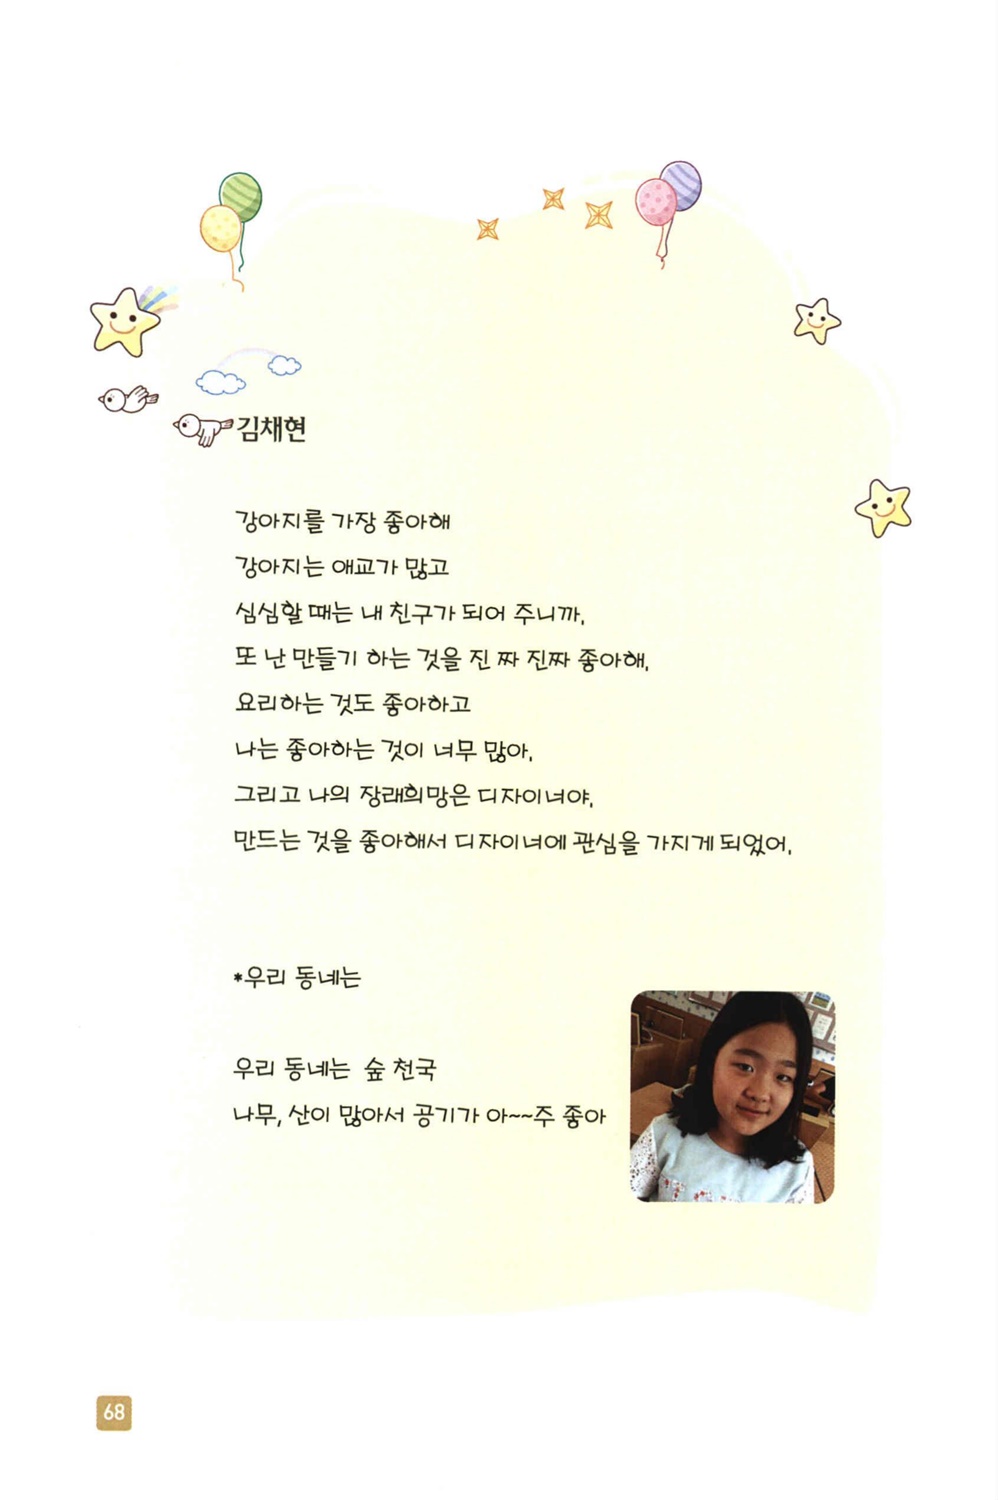 김채현
강아지를 가장 좋아해
강아지는 애교가 많고
심심할 때는 내 친구가 되어 주니까.
또 난 만들기 하는 것을 진 짜 진짜 좋아해.
요리하는 것도 좋아하고
나는 좋아하는 것이 너무 많아.
그리고 나의 장래희망은 디자이너야.
만드는 것을 좋아해서 디자이너에 관심을 가지게 되었어.
*우리 동네는
우리 동네는 숲 천국
나무, 산이 많아서 공기가 아~~주 좋아
68